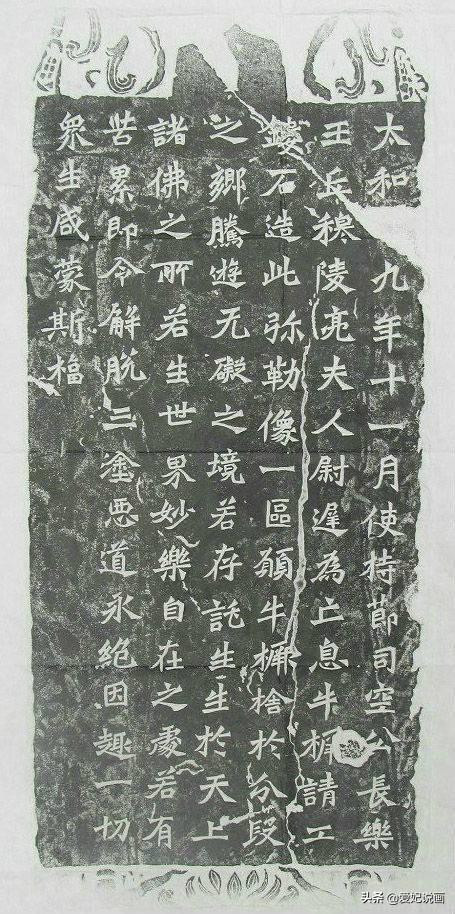 太和九年十一月使持節司空公長樂
王丘穆陵亮夫人尉遲為亡息牛橛請工
鏤石造此弥勒像一區願牛橛捨於分段
之鄉騰遊无礙之境若存託生生於天上
諸佛之所若生世界妙樂自在之處若有
苦累即令解脫三塗惡道永絕因趣一切
眾生咸蒙斯福
头条 @爱妃说画